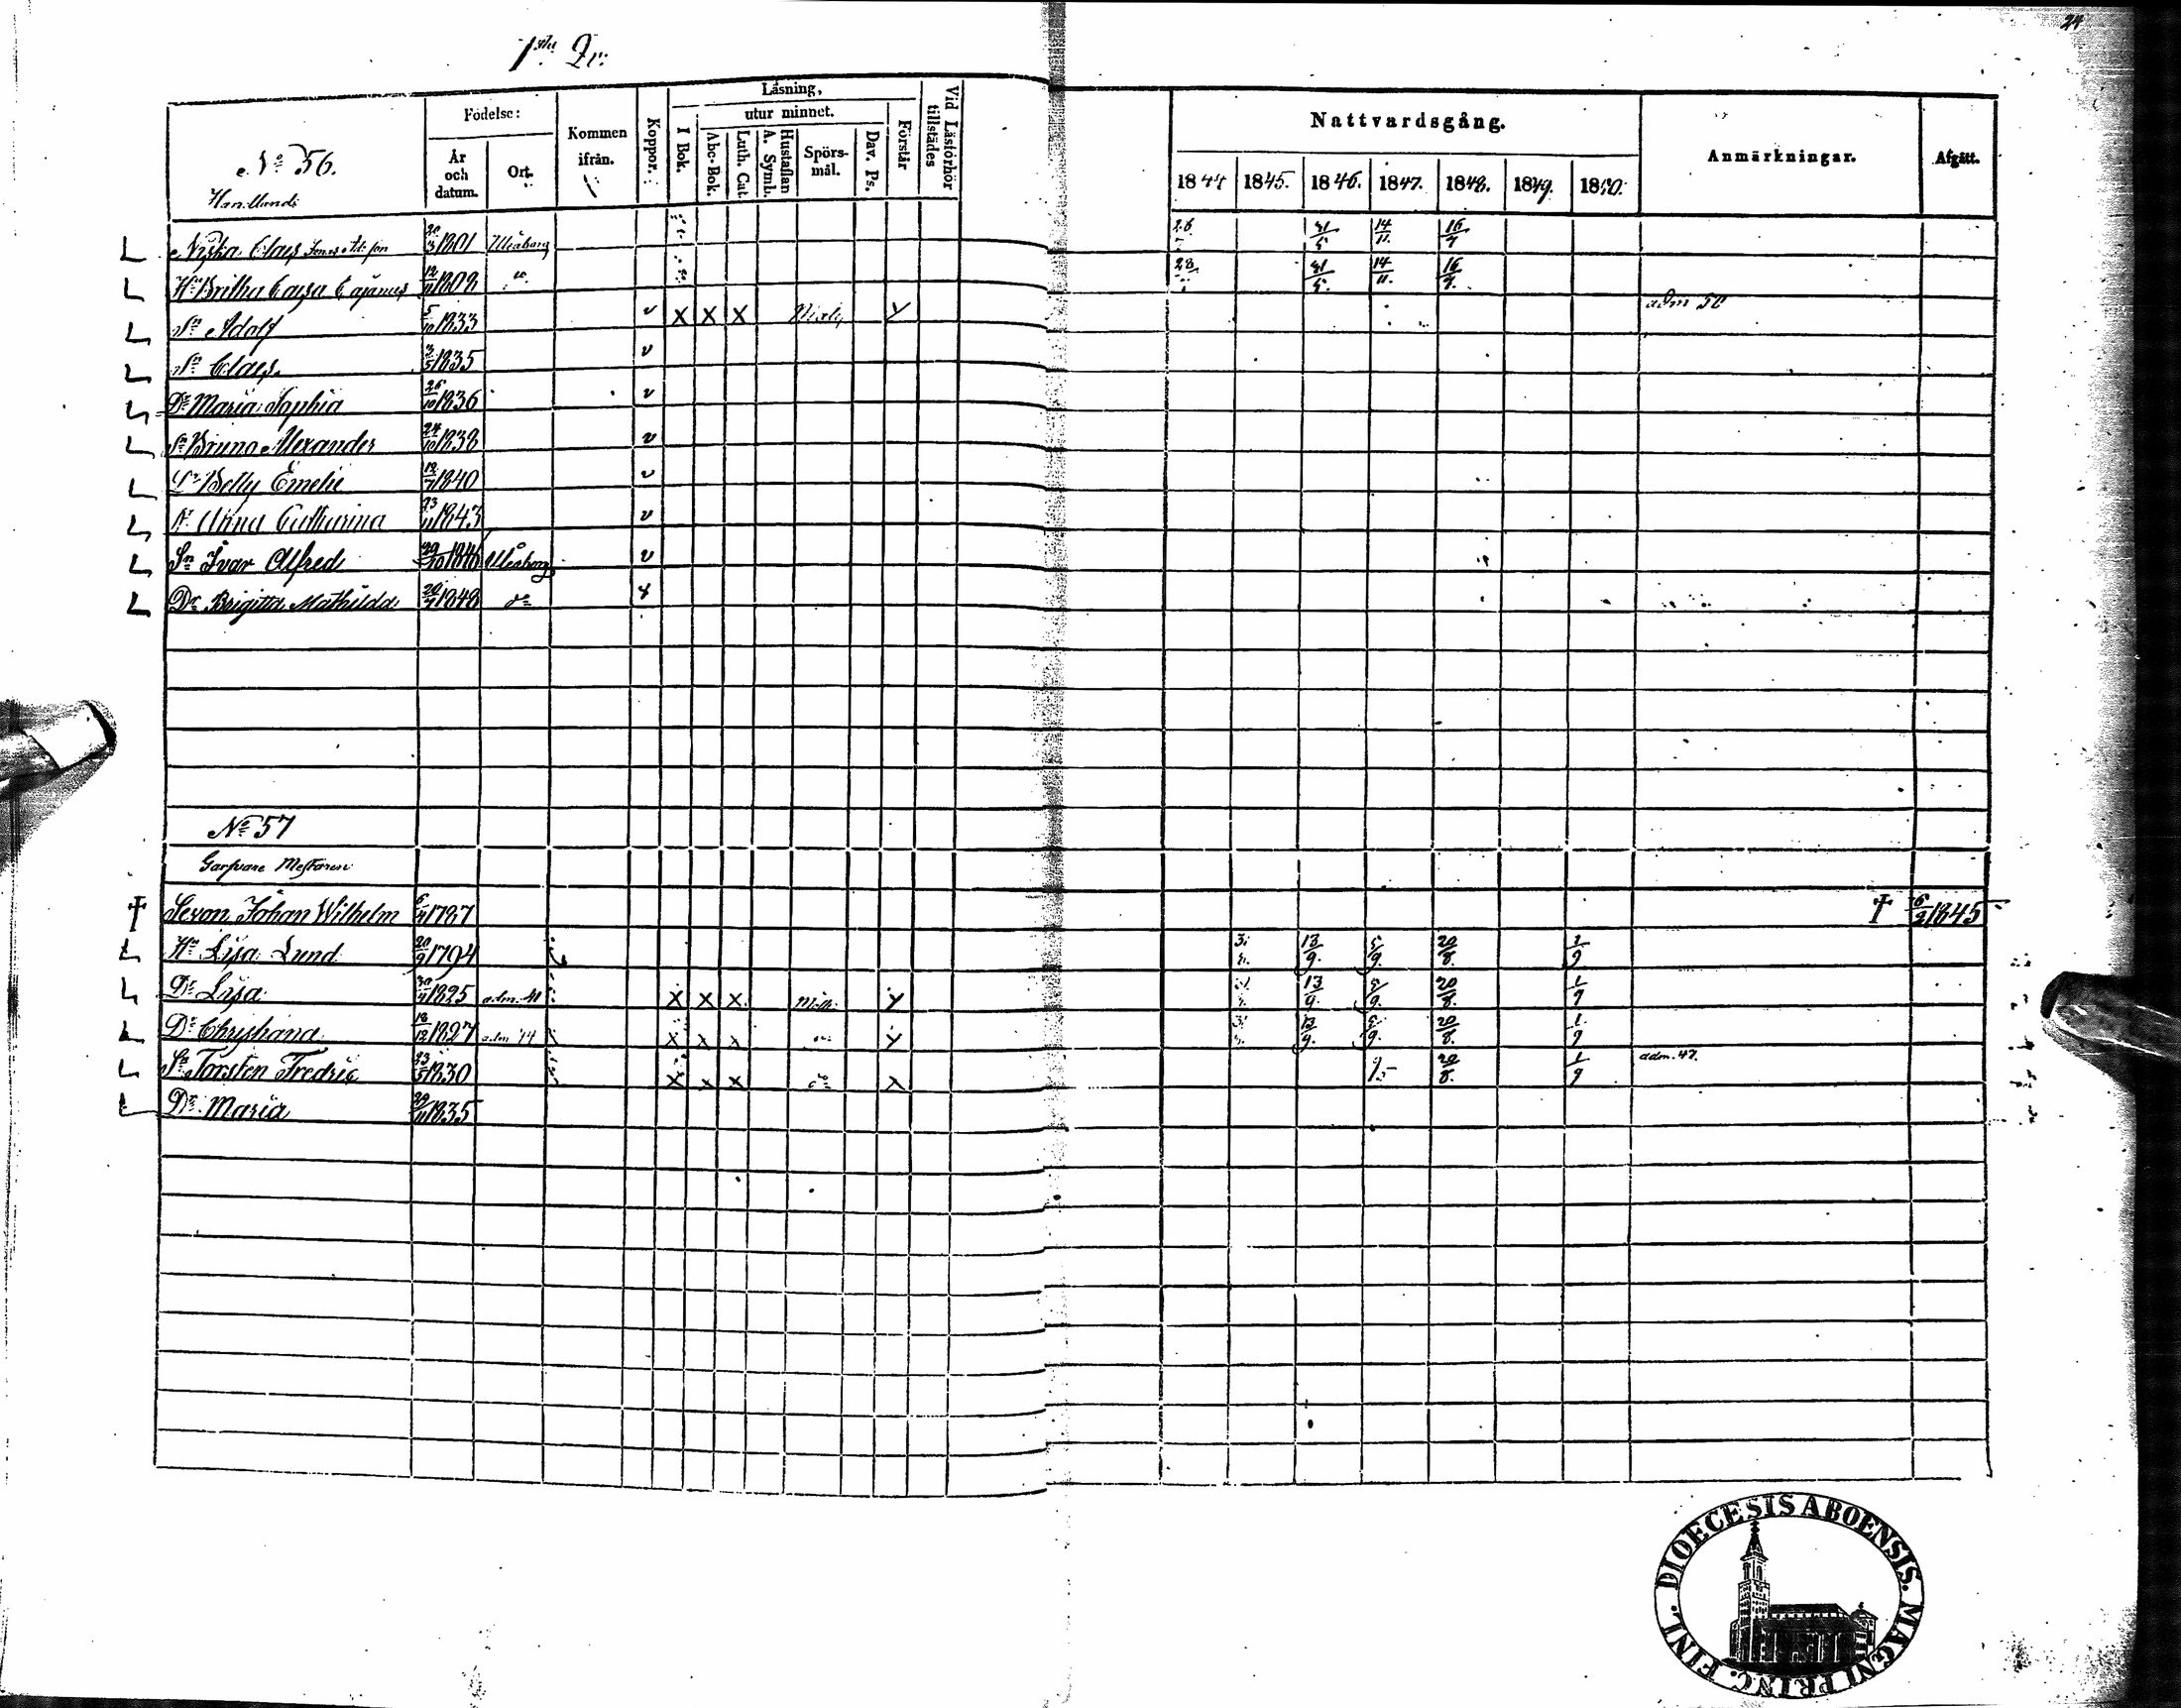 24
1sta Qv:
Födelse:
Kommen ifrån.
Koppor.
Läsning,
utur minnet.
År och datum.
Ort.
I Bok.
Abc-Bok.
Luth. Cat.
Hustaflan A. Symb.
Spörsmål.
Dav. Ps.
Förstår
Vid Läsförhör tillstädes
Nattvardsgång.
Anmärkningar.
Afgått.
1844 1845. 1846. 1847. 1848. 1849. 1850.
No 56.
Handlande
Niska Claes 20/3 1801 Uleåborg 31/5 14/11. 16/7
Hu Britha Caisa Cajanus 12/11 1808 do 31/5. 14/11. 16/7.
Sn Adolf 5/10 1833 v X X X adm 50
Sn Claes. 3/5 1835 v
Dr Maria Sophia 26/10 1836 v
Sn Bruno Alexander 24/10 1838 v
Dr Betty Emelie 12/7 1840 v
Dr Anna Catharina 23/11 1843 v
Sn Ivar Alfred 29/10 1846 Uleåborg v
Dr Brigitta Mathilda 20/7 1848 do
No 57
Garfvare Mestaren
Sevon Johan Wilhelm 6/4 1787 † 6/2 1845
Hu Lisa Lund 20/9 1794 13/9. 5/9. 20/8. 1/9
Dr Lisa 30/4 1825 adm. 41 X X X 13/9. 5/9. 20/8. 1/9
Dr Christiana 18/12 1827 adm 44 X X X 13/9. 5/9. 20/8. 1/9
Sn Torsten Fredric 23/5 1830 X X X do X 20/8. 1/9 adm. 47.
Dr Maria 29/11 1835
DIOECESIS ABOENSIS. MAGNI PRINC. FINL.